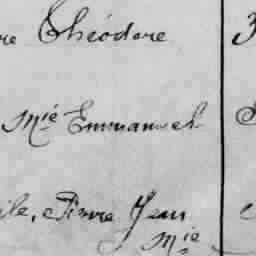 re Théodore 3
Mié Emmanuel
ile, Pierre Jean
Mie